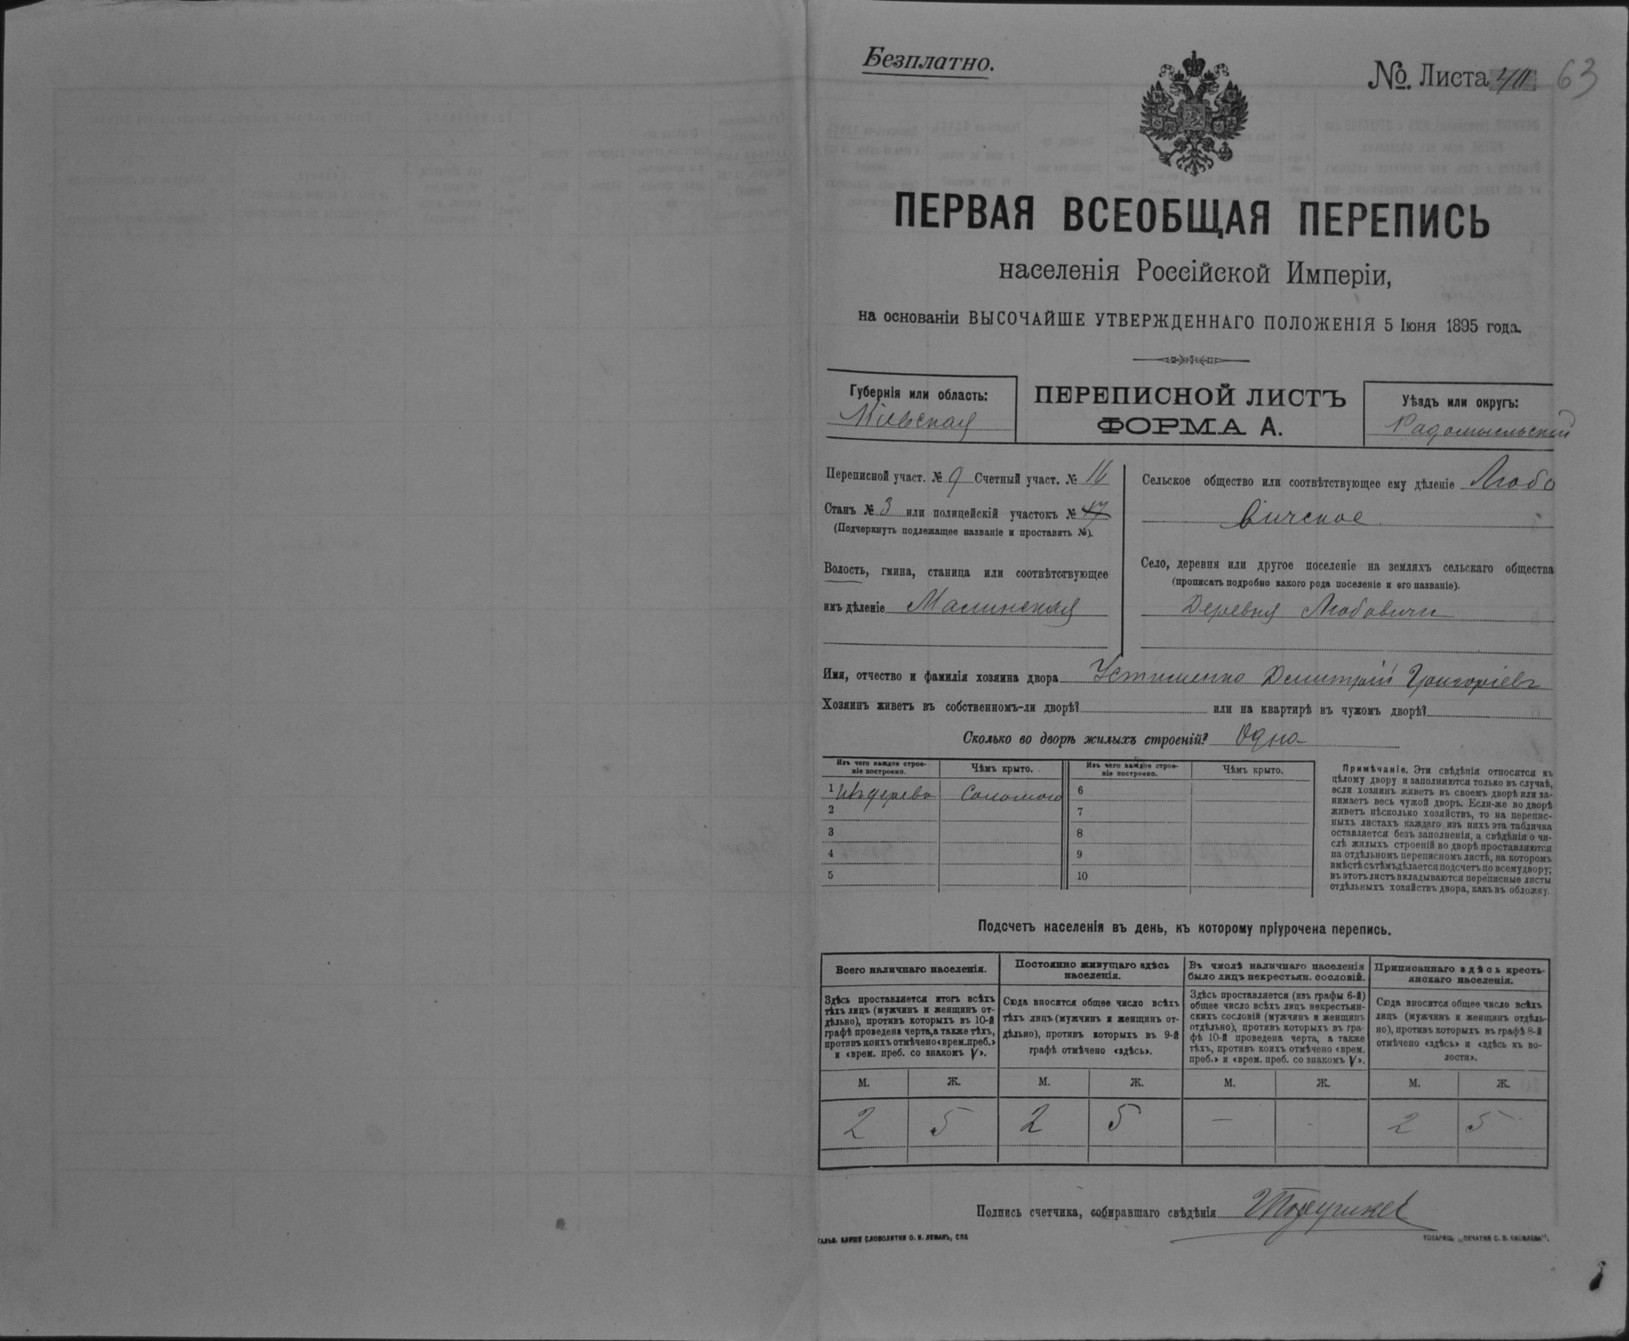 Безплатно.
№. Листа 63
ПЕРВАЯ ВСЕОБЩАЯ ПЕРЕПИСЬ
населенія Россійской Имперіи,
на основаніи ВЫСОЧАЙШЕ УТВЕРЖДЕННАГО ПОЛОЖЕНІЯ 5 Іюня 1895 года.
Губернія или область:
Кіевская
ПЕРЕПИСНОЙ ЛИСТЪ
ФОРМА А.
Уѣздъ или округъ:
Радомысльскій
Переписной участ. № 9 Счетный участ. № 16
Станъ № 3 или полицейскій участокъ № 17
(Подчеркнуть подлежащее названіе и проставить №).
Волость, гмина, станица или соотвѣтствующее
имъ дѣленіе Малинская
Сельское общество или соотвѣтствующее ему дѣленіе Любо
вичское
Село, деревня или другое поселеніе на земляхъ сельскаго общества
(прописать подробно какого рода поселеніе и его названіе).
Деревня Любовичи
Имя, отчество и фамилія хозяина двора Устименко Дмитрій Григоріевъ
Хозяинъ живетъ въ собственномъ-ли дворѣ? или на квартирѣ въ чужомъ дворѣ?
Сколько во дворѣ жилыхъ строеній? Одна
Изъ чего каждое строе-
ніе построено.
Чѣмъ крыто.
Изъ чего каждое строе-
ніе построено.
Чѣмъ крыто.
1 Изъ дерева Соломою 6
2 7
3 8
4 9
5 10
Примѣчаніе. Эти свѣдѣнія относятся къ
цѣлому двору и заполняются только въ случаѣ,
если хозяинъ живетъ въ своемъ дворѣ или за-
нимаетъ весь чужой дворъ. Если-же во дворѣ
живетъ нѣсколько хозяйствъ, то на перепис-
ныхъ листахъ каждаго изъ нихъ эта табличка
оставляется безъ заполненія, а свѣдѣнія о чи-
слѣ жилыхъ строеній во дворѣ проставляются
на отдѣльномъ переписномъ листѣ, на которомъ
вмѣстѣ съ тѣмъ дѣлается подсчетъ по всему двору;
въ этотъ листъ вкладываются переписные листы
отдѣльныхъ хозяйствъ двора, какъ въ обложку.
Подсчетъ населенія въ день, къ которому пріурочена перепись.
Всего наличнаго населенія.
Здѣсь проставляется итогъ всѣхъ
тѣхъ лицъ (мужчинъ и женщинъ от-
дѣльно), противъ которыхъ въ 10-й
графѣ проведена черта, а также тѣхъ,
противъ коихъ отмѣчено «врем. преб.»
и «врем. преб. со знакомъ V».
Постоянно живущаго здѣсь
населенія.
Сюда вносится общее число всѣхъ
тѣхъ лицъ (мужчинъ и женщинъ от-
дѣльно), противъ которыхъ въ 9-й
графѣ отмѣчено «здѣсь».
Въ числѣ наличнаго населенія
было лицъ некрестьян. сословій.
Здѣсь проставляется (изъ графы 6-й)
общее число всѣхъ лицъ некрестьян-
скихъ сословій (мужчинъ и женщинъ
отдѣльно), противъ которыхъ въ гра-
фѣ 10-й проведена черта, а также
тѣхъ, противъ коихъ отмѣчено «врем.
преб.» и «врем. преб. со знакомъ V».
Приписаннаго здѣсь кресть-
янскаго населенія.
Сюда вносится общее число всѣхъ
лицъ (мужчинъ и женщинъ отдѣль-
но), противъ которыхъ въ графѣ 8-й
отмѣчено «здѣсь» и «здѣсь къ во-
лости».
М. Ж. М. Ж. М. Ж. М. Ж.
2 5 2 5 – - 2 5
Подпись счетчика, собиравшаго свѣдѣнія
СЛОВОЛИТНИ О. И. ЛЕМАНЪ, СПБ
ТОВАРИЩ. „ПЕЧАТНЯ С. П. ЯКОВЛЕВА“.